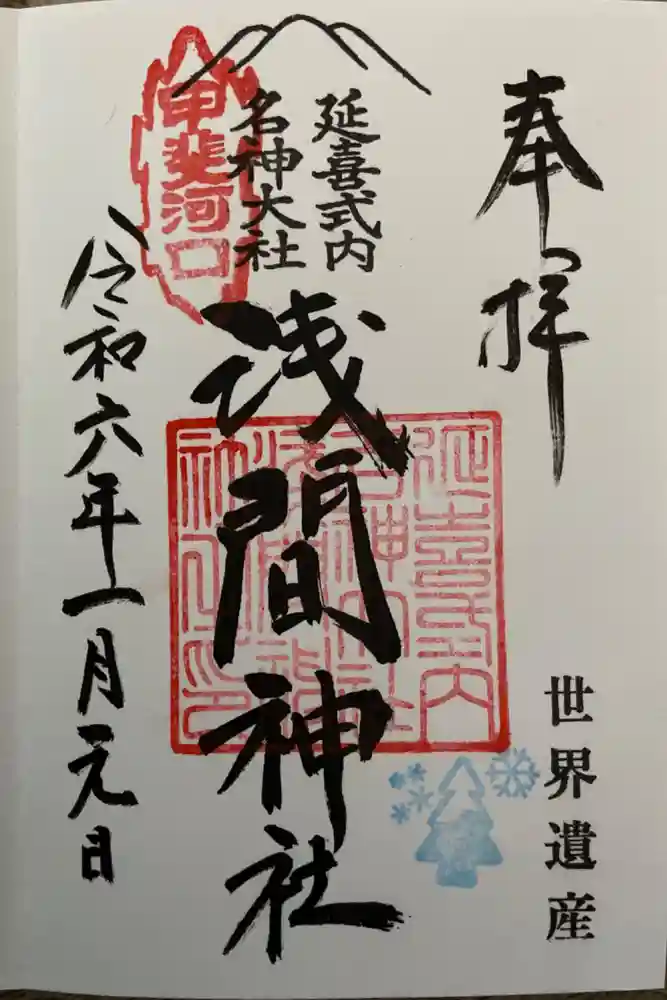 奉拝
世界遺産
延喜式内
名神大社
甲斐河口
浅間神社
延喜式内
名神大社
浅間神
社之印
令和六年一月元日